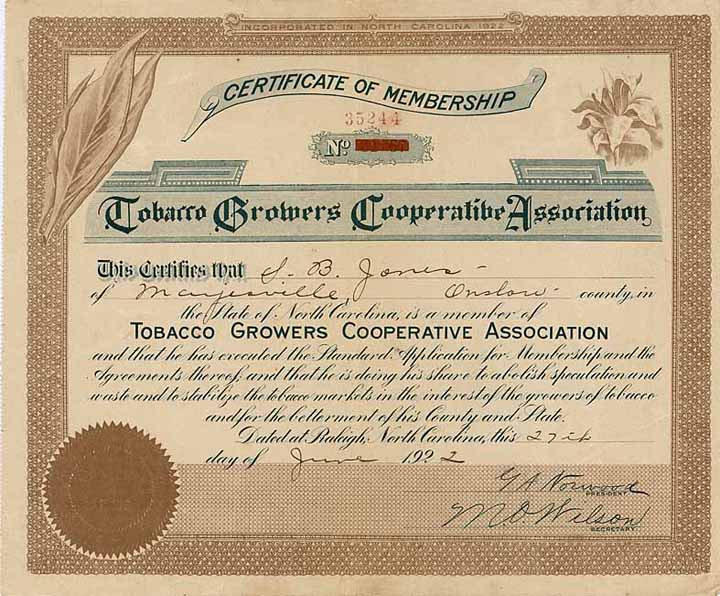 INCORPORATED IN NORTH CAROLINA 1922
CERTIFICATE OF MEMBERSHIP
35244
No
Tobacco Growers Cooperative Association
This Certifies that S. B. Jones
of Maysville, Onslow county, in
the State of North Carolina, is a member of
TOBACCO GROWERS COOPERATIVE ASSOCIATION
and that he has executed the Standard Application for Membership and the
Agreements thereof, and that he is doing his share to abolish speculation and
waste and to stabilize the tobacco markets in the interest of the growers of tobacco
and for the betterment of his County and State.
Dated at Raleigh, North Carolina, this 27th
day of June 1922
G A Norwood
PRESIDENT.
M. O. Wilson
SECRETARY.